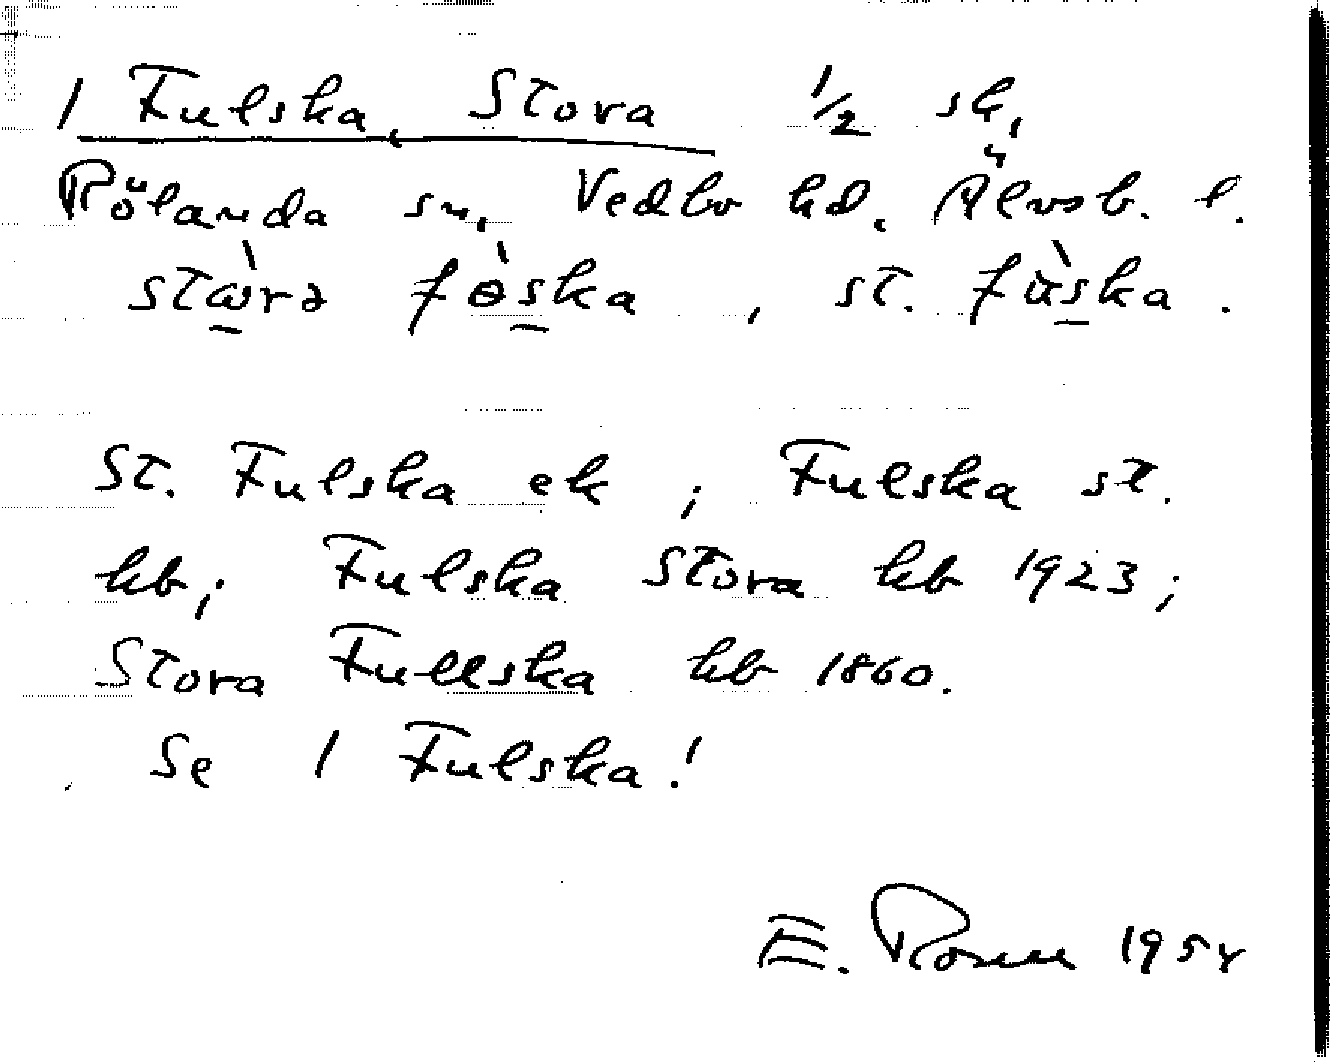 1 Fulska, Stora ½ sk,
Rölanda sn, Vedbo hd. Älvsb. l.
stɷ̀rə fɵ̀s̲ka, st. fùs̲ka.
St. Fulska ek; Fulska st.
kb; Fulska Stora kb 1923;
Stora Fullska kb 1860.
Se 1 Fulska!
E. 1954